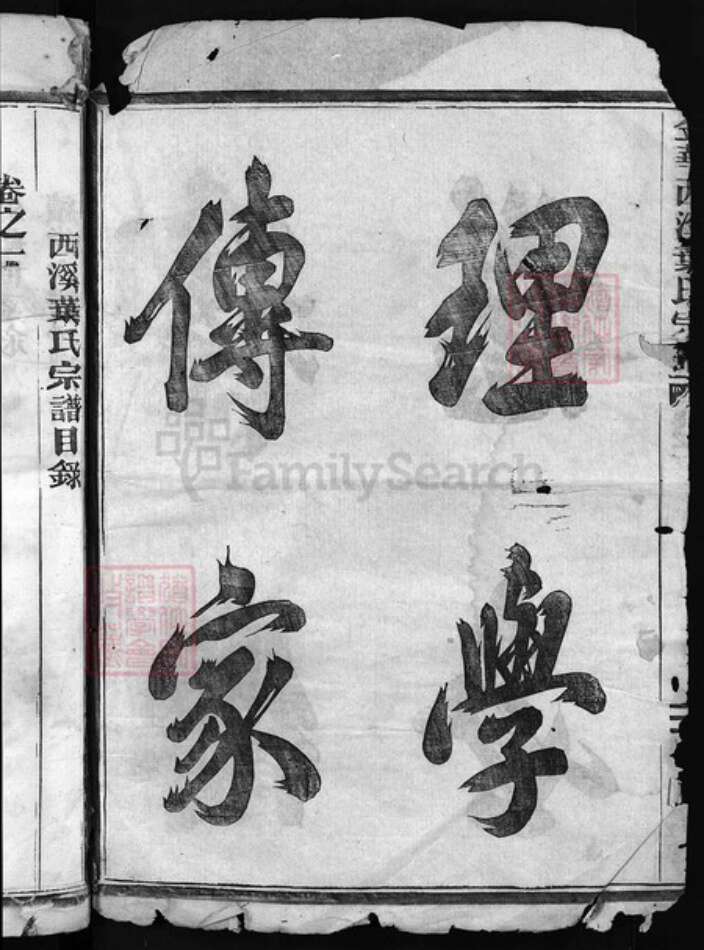 金華西溪葉氏宗譜
理學
傳家
西溪葉氏宗譜目錄
卷之一
FamilySearch